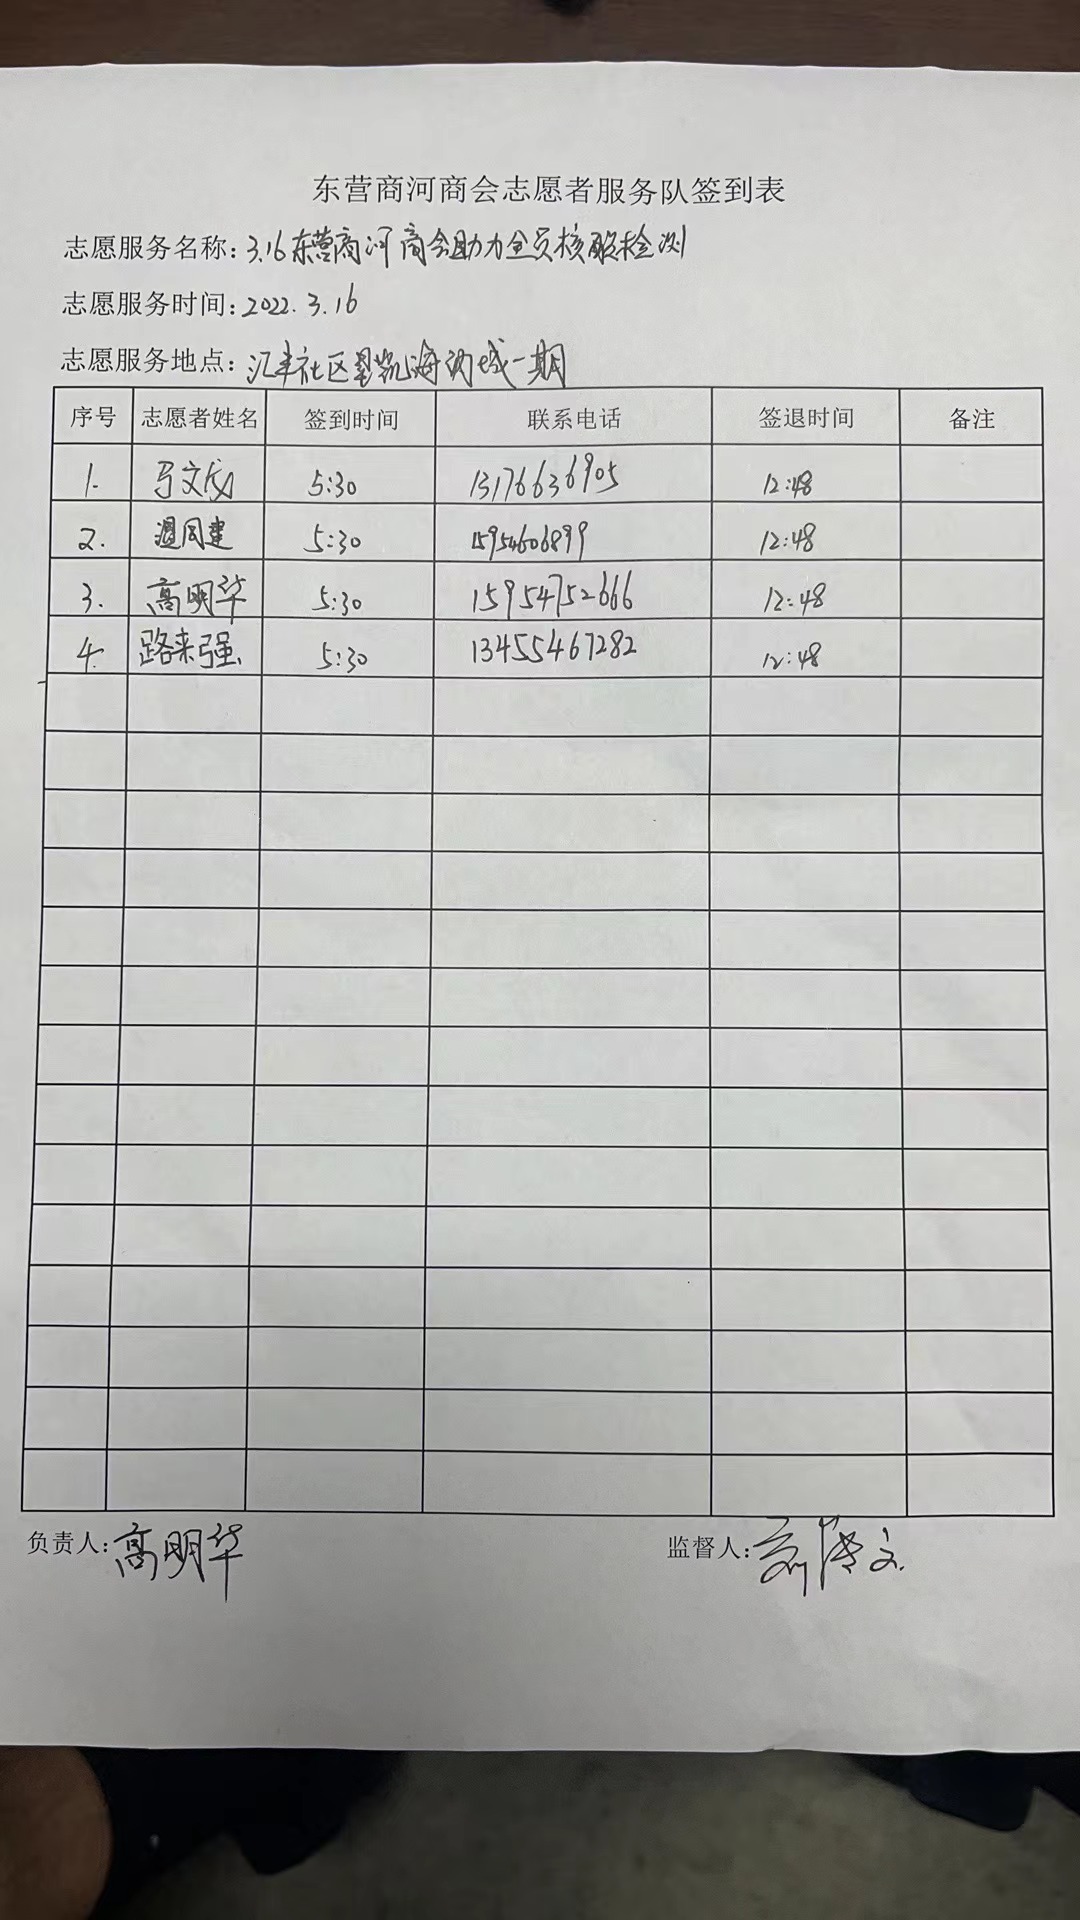 东营商河商会志愿者服务队签到表
志愿服务名称:3.16东营商河商会助力全员核酸检测
志愿服务时间:2022.3.16
志愿服务地点:汇丰社区星凯海湾城一期
序号 志愿者姓名 签到时间 联系电话 签退时间 备注
1. 马文成 5:30 13176636905 12:48
2. 温同建 5:30 15954606899 12:48
3. 高明华 5:30 15954752666 12:48
4. 路来强 5:30 13455467282 12:48
负责人:高明华 监督人: